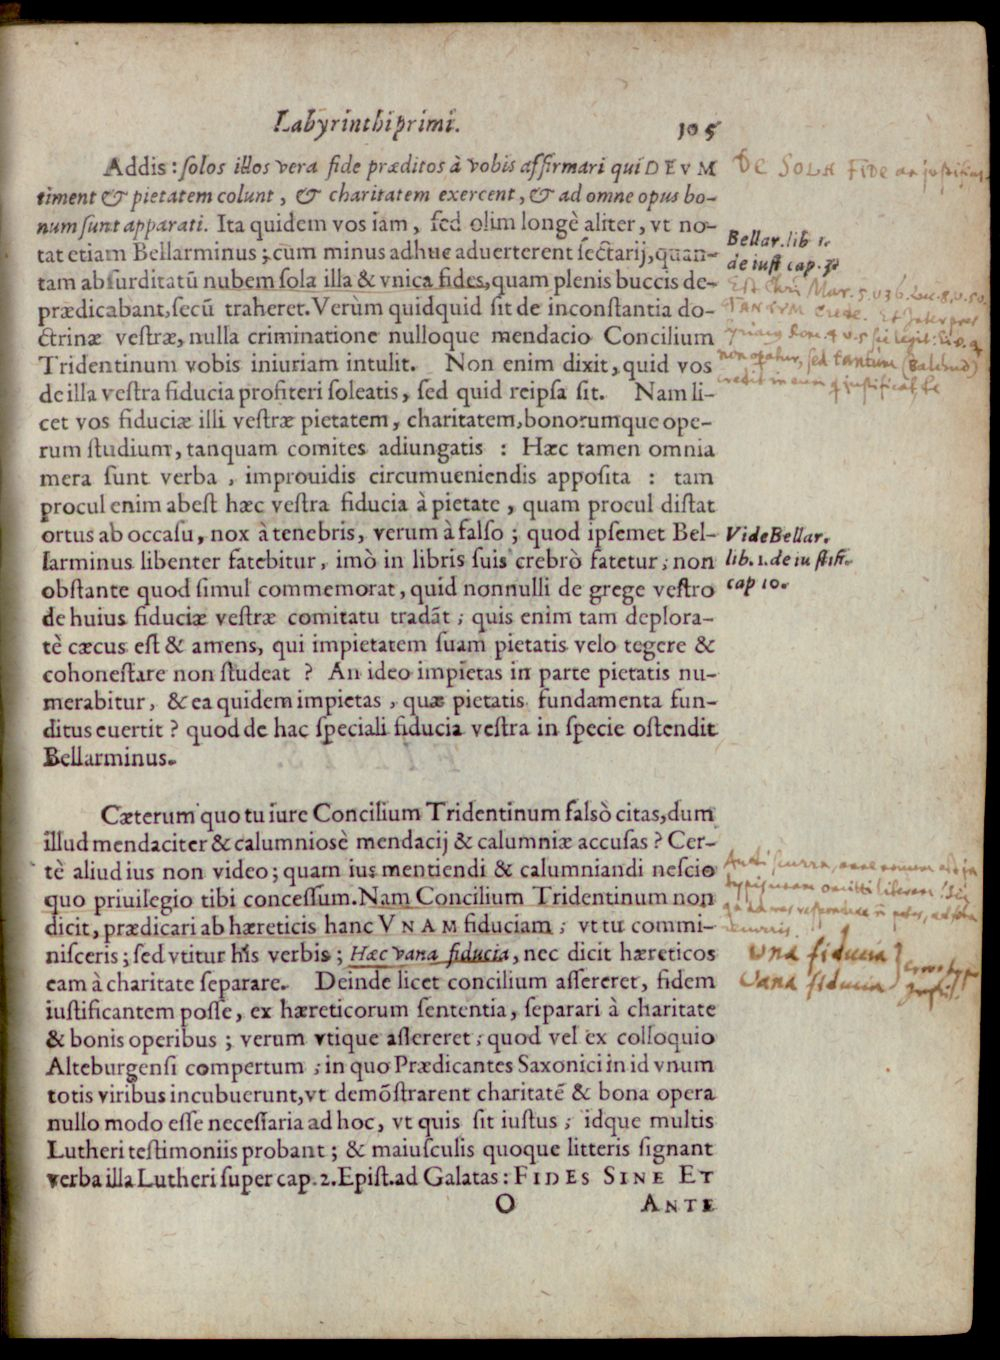 Labyrinthi primi. 105
Addis: solos illos vera fide præditos à vobis affirmari qui DEVM
timent & pietatem colunt, & charitatem exercent, & ad omne opus bo-
num sunt apparati. Ita quidem vos iam, sed olim longè aliter, vt no-
tat etiam Bellarminus; cùm minus adhuc aduerterent sectarij, quan-
tam absurditatū nubem sola illa & vnica fides, quam plenis buccis de-
prædicabant, secū traheret. Verùm quidquid sit de inconstantia do-
ctrinæ vestræ, nulla criminatione nulloque mendacio Concilium
Tridentinum vobis iniuriam intulit. Non enim dixit, quid vos
de illa vestra fiducia profiteri soleatis, sed quid reipsa sit. Nam li-
cet vos fiduciæ illi vestræ pietatem, charitatem, bonorumque ope-
rum studium, tanquam comites adiungatis: Hæc tamen omnia
mera sunt verba, improuidis circumueniendis apposita: tam
procul enim abest hæc vestra fiducia à pietate, quam procul distat
ortus ab occasu, nox à tenebris, verum à falso; quod ipsemet Bel-
larminus libenter fatebitur, imò in libris suis crebrò fatetur; non
obstante quod simul commemorat, quid nonnulli de grege vestro
de huius fiduciæ vestræ comitatu tradāt; quis enim tam deplora-
tè cæcus est & amens, qui impietatem suam pietatis velo tegere &
cohonestare non studeat? An ideo impietas in parte pietatis nu-
merabitur, & ea quidem impietas, quæ pietatis fundamenta fun-
ditus euertit? quod de hac speciali fiducia vestra in specie ostendit
Bellarminus.
Cæterum quo tu iure Concilium Tridentinum falsò citas, dum
illud mendaciter & calumniosè mendacij & calumniæ accusas? Cer-
tè aliud ius non video; quam ius mentiendi & calumniandi nescio
quo priuilegio tibi concessum. Nam Concilium Tridentinum non
dicit, prædicari ab hæreticis hanc VNAM fiduciam; vt tu commi-
nisceris; sed vtitur his verbis; Hæc vana fiducia, nec dicit hæreticos
eam à charitate separare. Deinde licet concilium assereret, fidem
iustificantem posse, ex hæreticorum sententia, separari à charitate
& bonis operibus; verum vtique assereret; quod vel ex colloquio
Alteburgensi compertum; in quo Prædicantes Saxonici in id vnum
totis viribus incubuerunt, vt demōstrarent charitatē & bona opera
nullo modo esse necessaria ad hoc, vt quis sit iustus; idque multis
Lutheri testimoniis probant; & maiusculis quoque litteris signant
verba illa Lutheri super cap. 2. Epist. ad Galatas: FIDES SINE ET
O ANTE
De SOLA FIDE
Bellar. lib 1.
de iust cap. 3.
Vide Bellar.
lib. 1. de iustifi.
cap 10.
Una fiducia
Vana fiducia